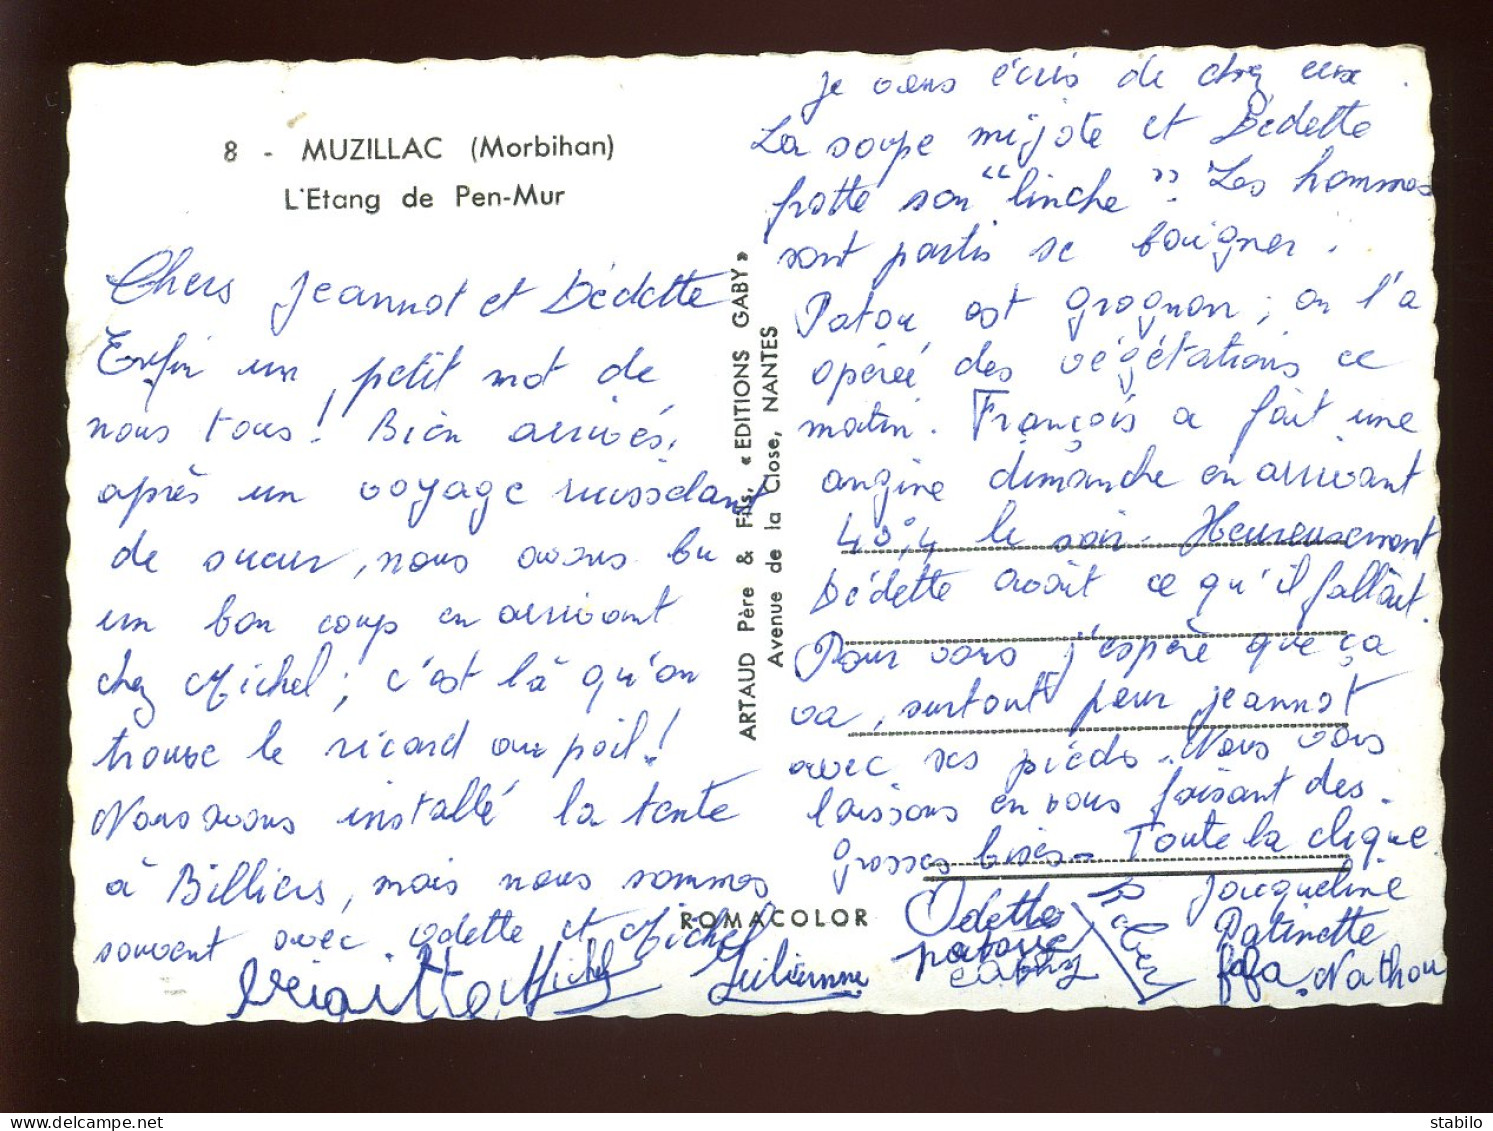 8 - MUZILLAC (Morbihan)
L'Etang de Pen-Mur
Chers Jeannot et Dédette
Enfin un petit mot de
nous tous! Bien arrivés,
après un voyage ruisselant
de sueur, nous avons bu
un bon coup en arrivant
chez Michel; c'est là qu'on
trouve le ricard au poil!
Nous avons installé la tente
à Billiers, mais nous sommes
souvent avec Odette et Michel
ARTAUD Père & Fils, « EDITIONS GABY »
Avenue de la Close, NANTES
ROMACOLOR
Je vous écris de chez eux.
La soupe mijote et Dédette
frotte son "linche". Les hommes
sont partis se baigner.
Patou est grognon; on l'a
opéré des végétations ce
matin. François a fait une
angine dimanche en arrivant
40°,4 le soir. Heureusement
Dédette avait ce qu'il fallait.
Pour vous j'espère que ça
va, surtout pour Jeannot
avec ses pieds. Nous vous
laissons en vous faisant des
grosses bises - Toute la clique
Jacqueline
Odette
Patinette
fafa. Nathou
Brigitte Michel